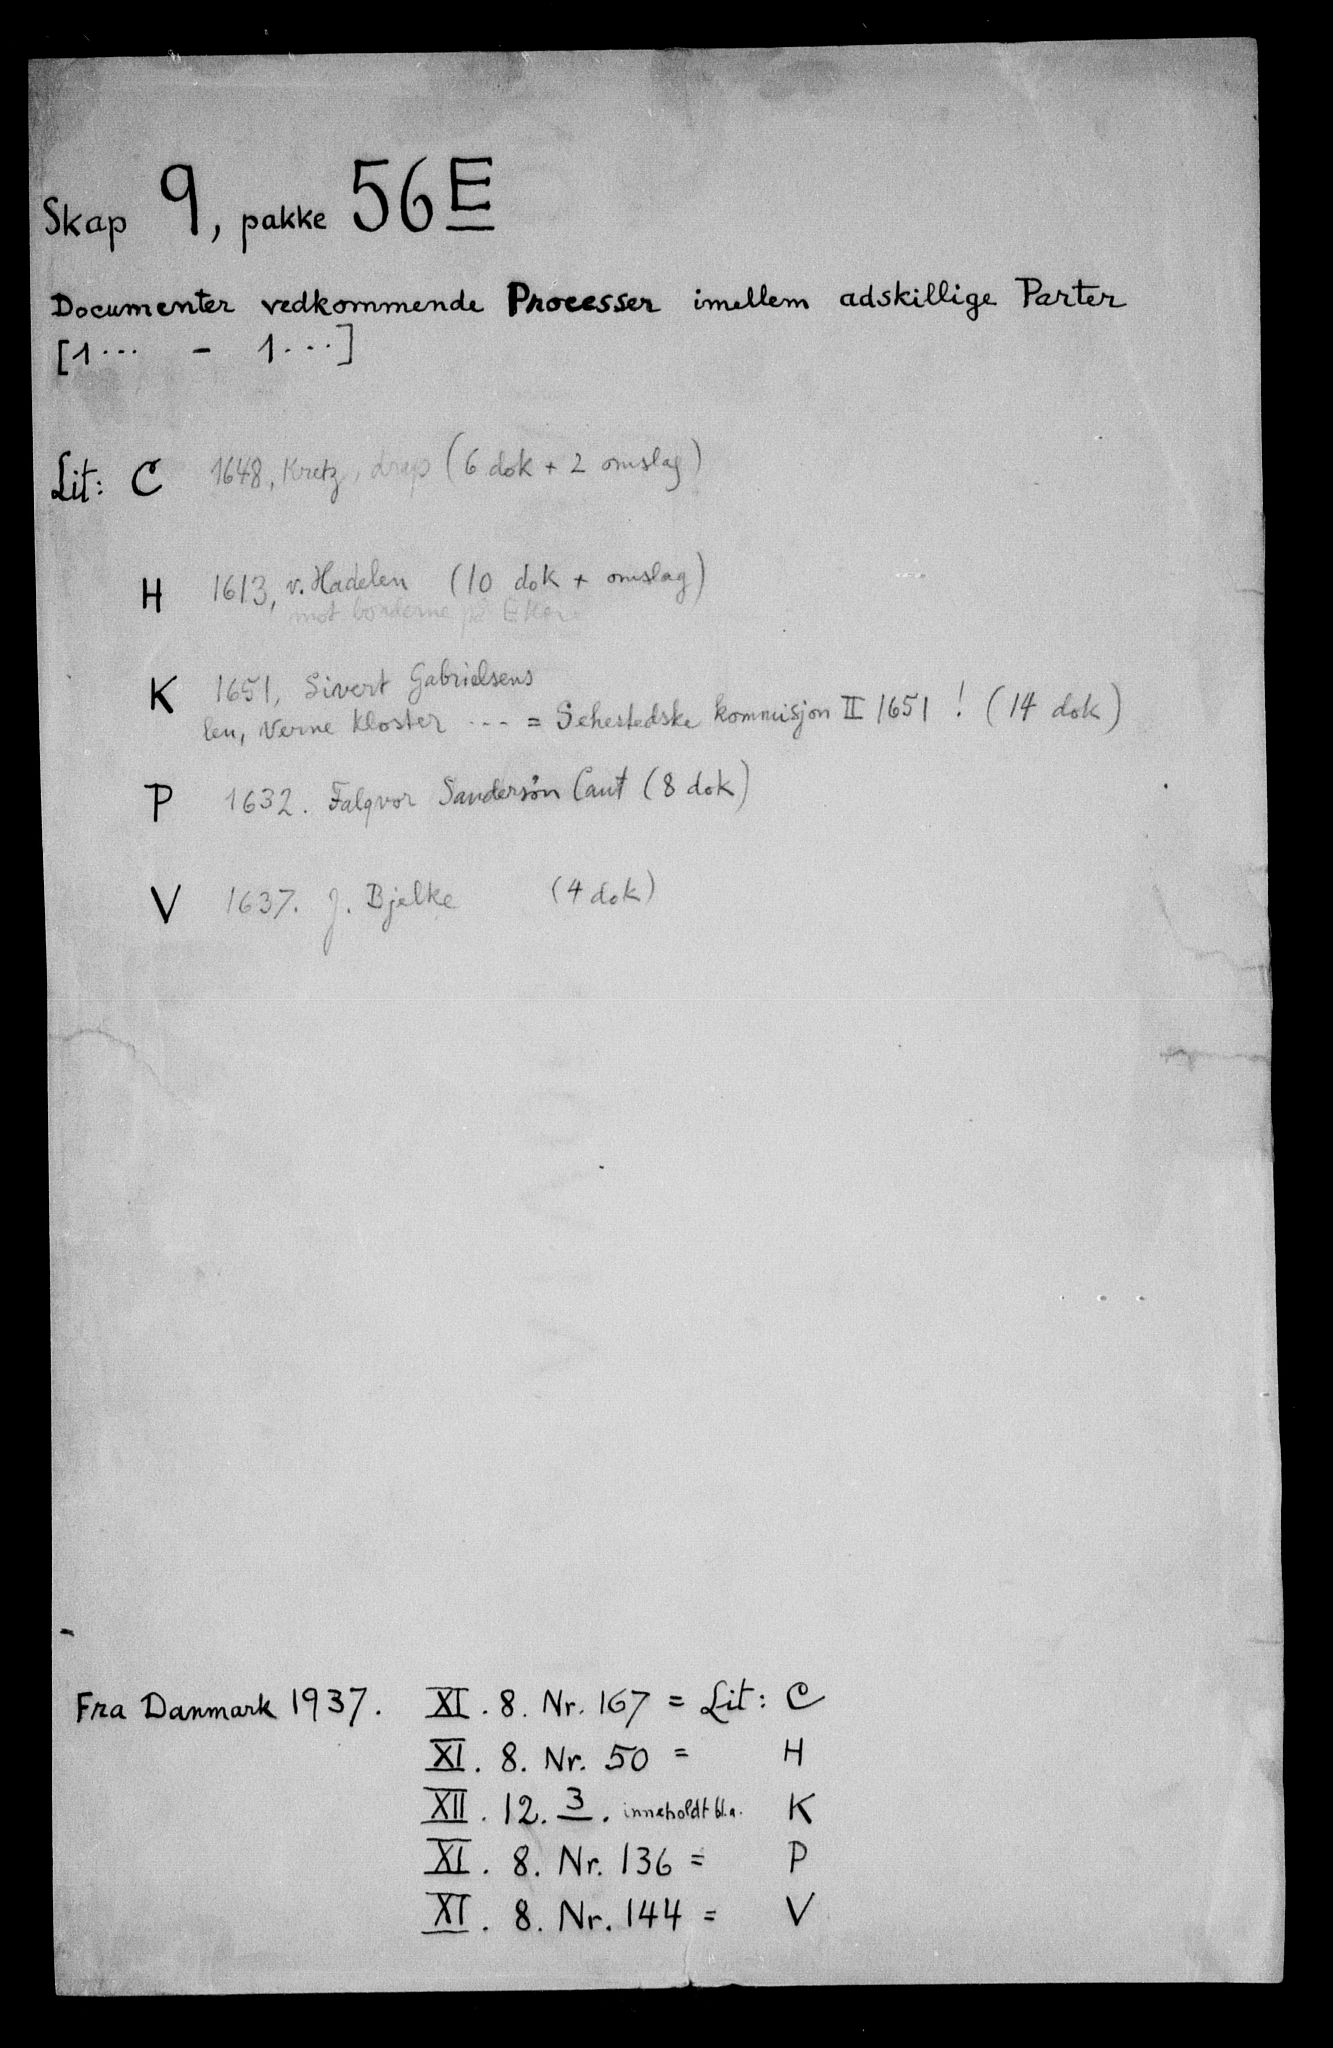 Skap 9, pakke 56E
Documenter vedkommende Processer imellem adskillige Parter
[1... - 1...]
Lit: C 1648, Kretz, drap (6 dok + 2 omslag)
H 1613, v. Hadelen (10 dok + omslag)
mot bønderne på Eker
K 1651, Sivert Gabrielsens
len, Verne Kloster ... = Sehestedske kommisjon II 1651 ! (14 dok)
P 1632. Falqvor Sandersøn Caut (8 dok)
V 1637. J. Bjelke (4 dok)
Fra Danmark 1937. XI. 8. Nr. 167 = Lit: C
XI. 8. Nr. 50 = H
XII. 12. 3. inneholdt bl.a. K
XI. 8. Nr. 136 = P
XI. 8. Nr. 144 = V